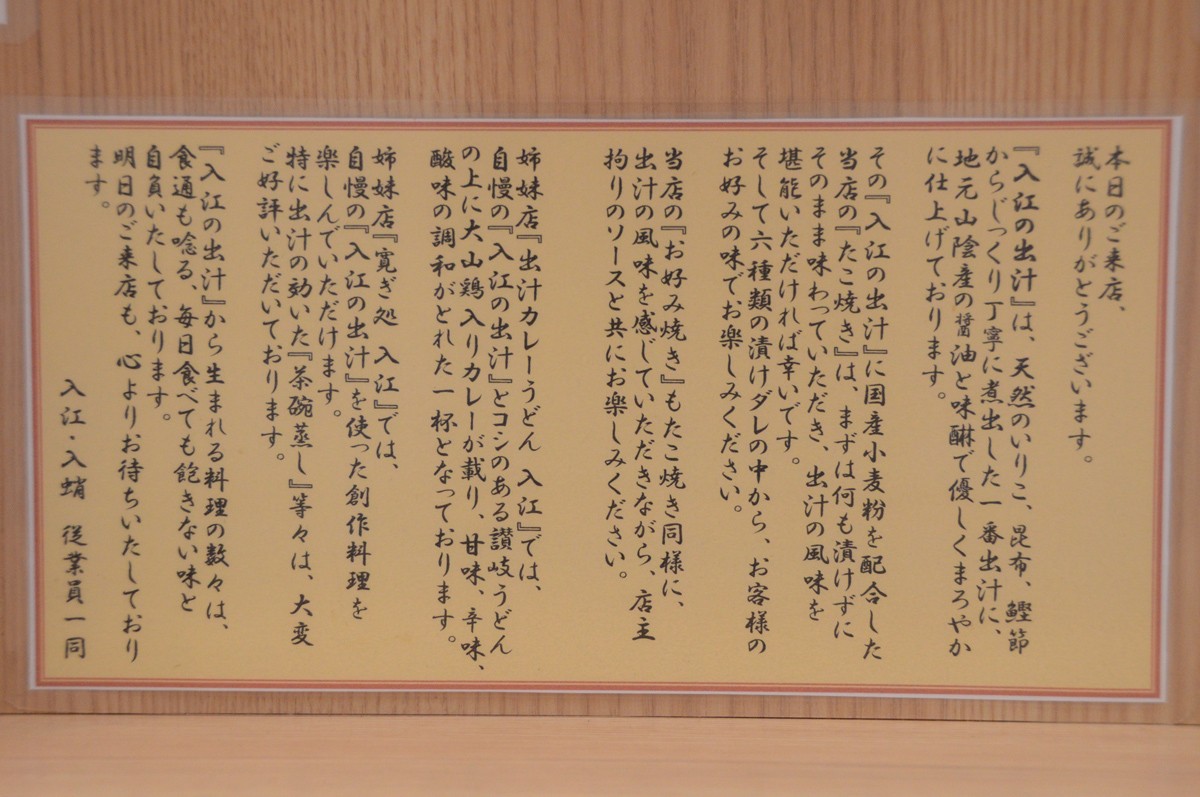 本日のご来店、
誠にありがとうございます。
『入江の出汁』は、天然のいりこ、昆布、鰹節
からじっくり丁寧に煮出した一番出汁に、
地元山陰産の醤油と味醂で優しくまろやか
に仕上げております。
その『入江の出汁』に国産小麦粉を配合した
当店の『たこ焼き』は、まずは何も漬けずに
そのまま味わっていただき、出汁の風味を
堪能いただければ幸いです。
そして六種類の漬けダレの中から、お客様の
お好みの味でお楽しみください。
当店の『お好み焼き』もたこ焼き同様に、
出汁の風味を感じていただきながら、店主
拘りのソースと共にお楽しみください。
姉妹店『出汁カレーうどん 入江』では、
自慢の『入江の出汁』とコシのある讃岐うどん
の上に大山鶏入りカレーが載り、甘味、辛味、
酸味の調和がとれた一杯となっております。
姉妹店『寛ぎ処 入江』では、
自慢の『入江の出汁』を使った創作料理を
楽しんでいただけます。
特に出汁の効いた『茶碗蒸し』等々は、大変
ご好評いただいております。
『入江の出汁』から生まれる料理の数々は、
食通も唸る、毎日食べても飽きない味と
自負いたしております。
明日のご来店も、心よりお待ちいたしており
ます。
入江・入蛸 従業員一同